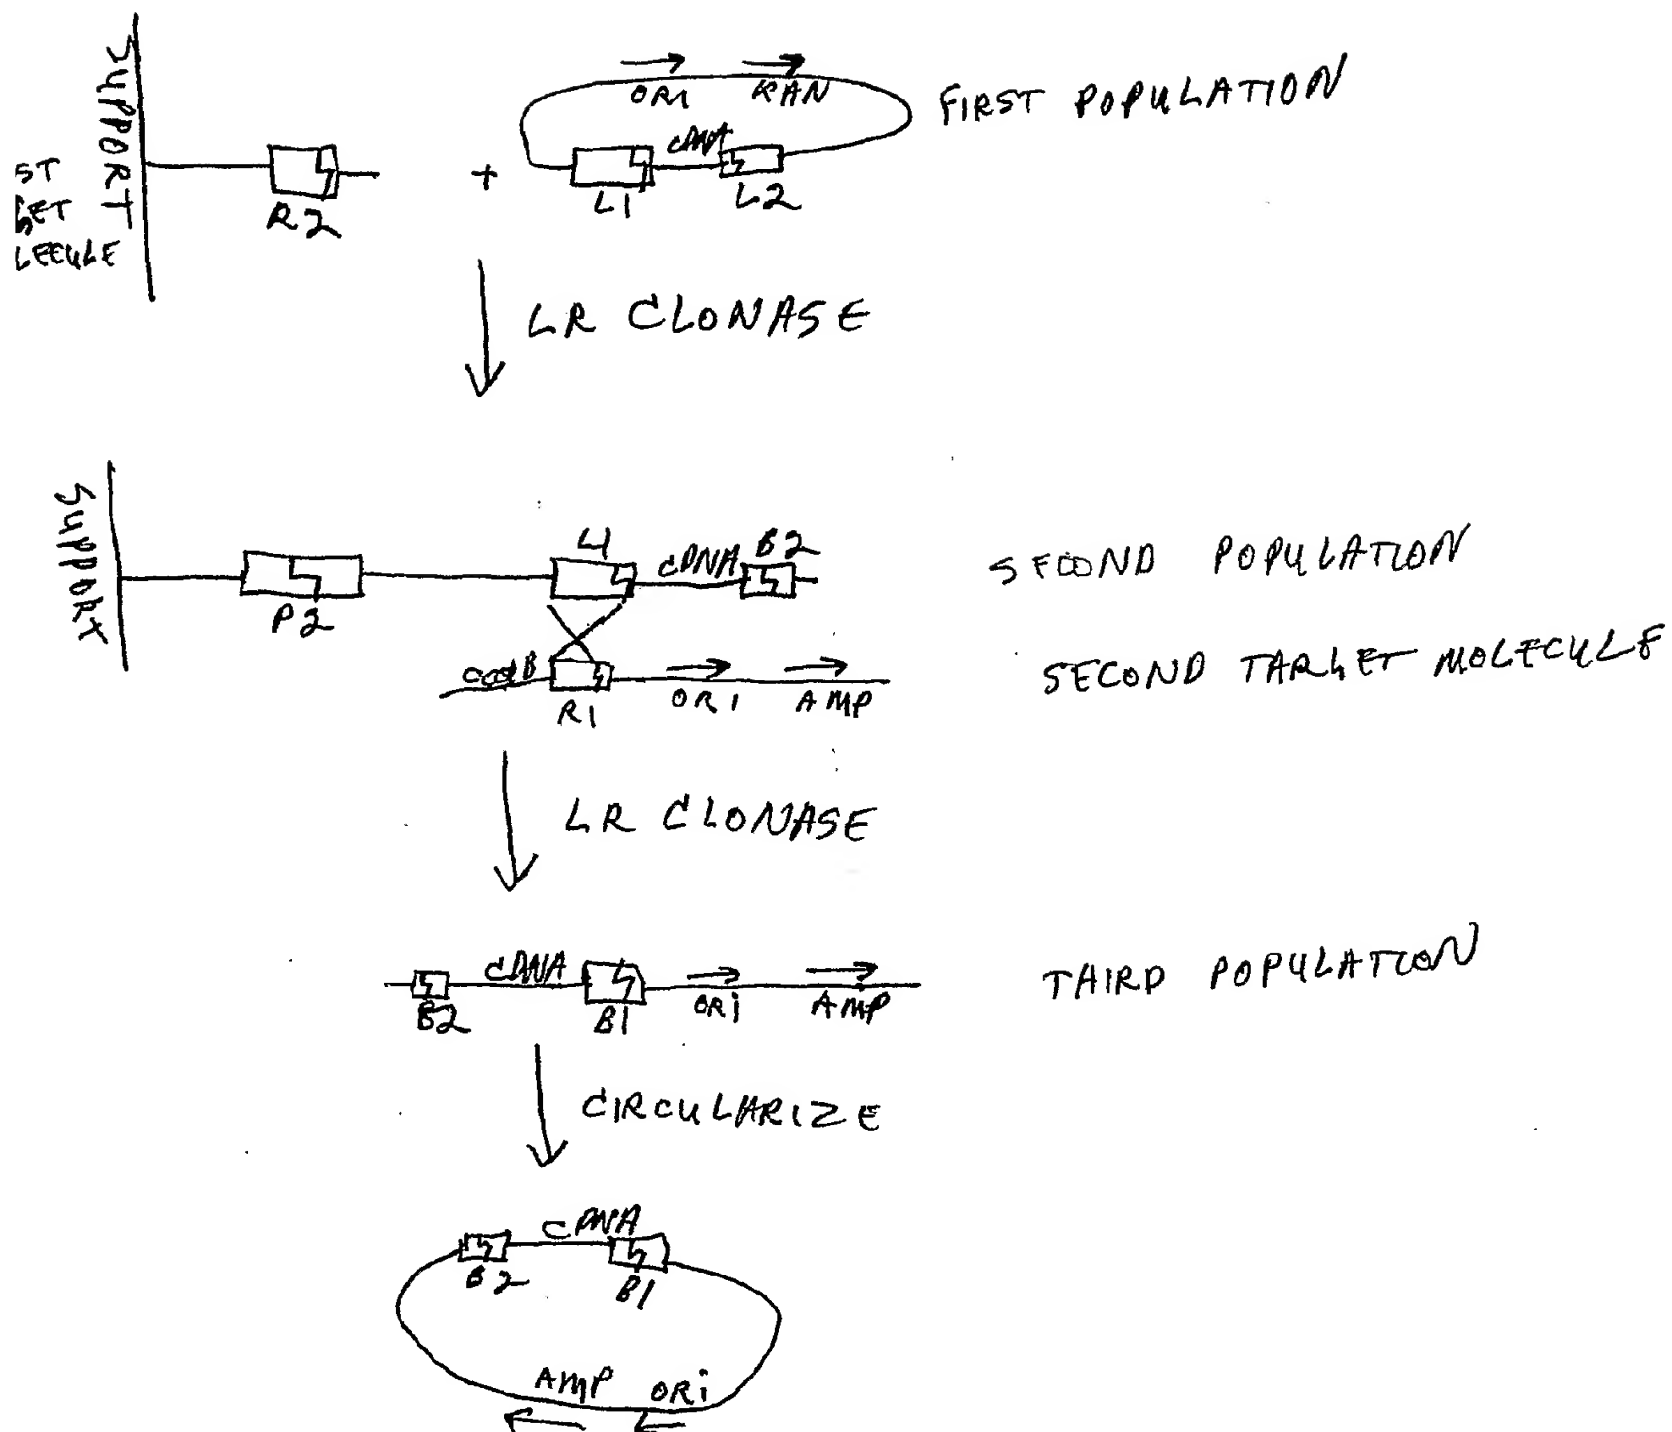 SUPPORT
ST
GET
LECULE
R2
+
ORI KAN
cDNA
L1 L2
FIRST POPULATION
LR CLONASE
SUPPORT
P2
L1
cDNA
B2
SECOND POPULATION
ccdB
R1
ORI AMP
SECOND TARGET MOLECULE
LR CLONASE
B2
cDNA
B1
ORi AMP
THIRD POPULATION
CIRCULARIZE
cDNA
B2 B1
AMP ORi